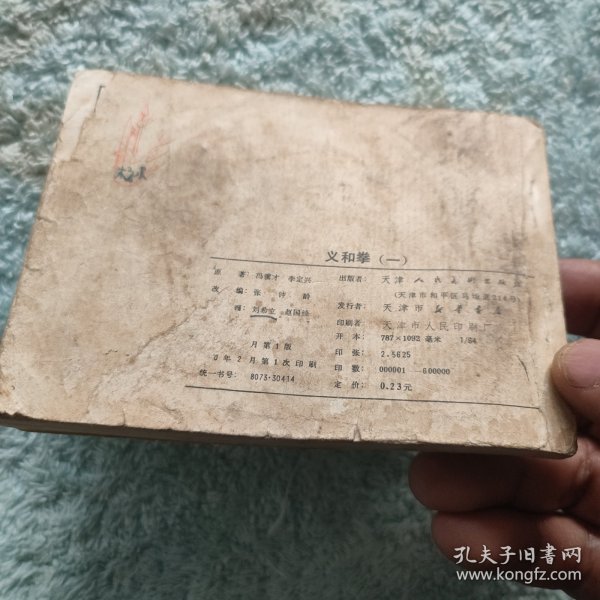 义和拳（一）
原　著：冯骥才　李定兴
改　编：张　钟　龄
画：刘希立　赵国经
月第1版
0年2月第1次印刷
统一书号：8073·30414
出版者：天津人民美术出版社
（天津市和平区马场道214号）
发行者：天津市新华书店
印刷者：天津市人民印刷厂
开　本：787×1092 毫米　1/64
印　张：2.5625
印　数：000001—600000
定　价：0.23元
孔夫子旧书网
www.kongfz.com